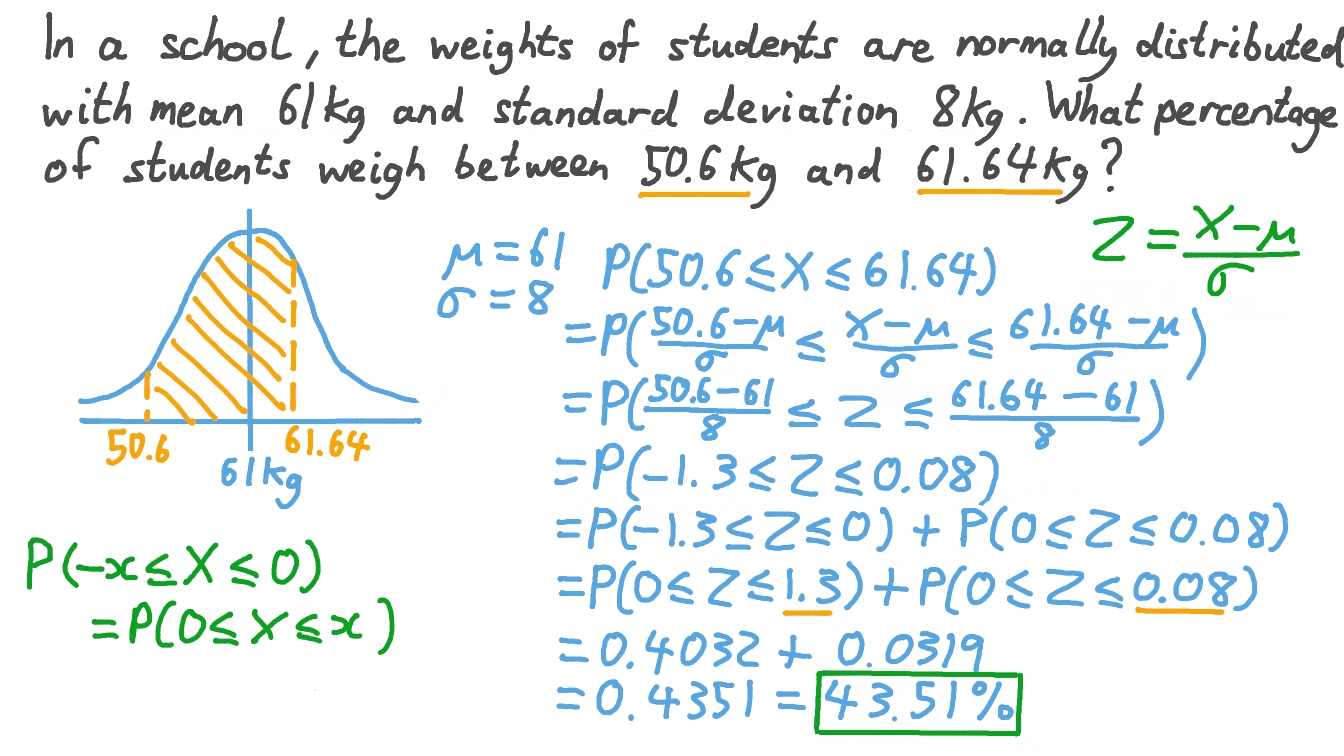 In a school, the weights of students are normally distributed
with mean 61kg and standard deviation 8kg. What percentage
of students weigh between 50.6kg and 61.64kg?
Z = (X-μ)/σ
μ=61
σ=8
50.6
61kg
61.64
P(50.6≤X≤61.64)
=P((50.6-μ)/σ ≤ (X-μ)/σ ≤ (61.64-μ)/σ)
=P((50.6-61)/8 ≤ Z ≤ (61.64-61)/8)
=P(-1.3≤Z≤0.08)
=P(-1.3≤Z≤0) + P(0≤Z≤0.08)
=P(0≤Z≤1.3)+P(0≤Z≤0.08)
=0.4032 + 0.0319
=0.4351 = 43.51%
P(-x≤X≤0)
=P(0≤X≤x)